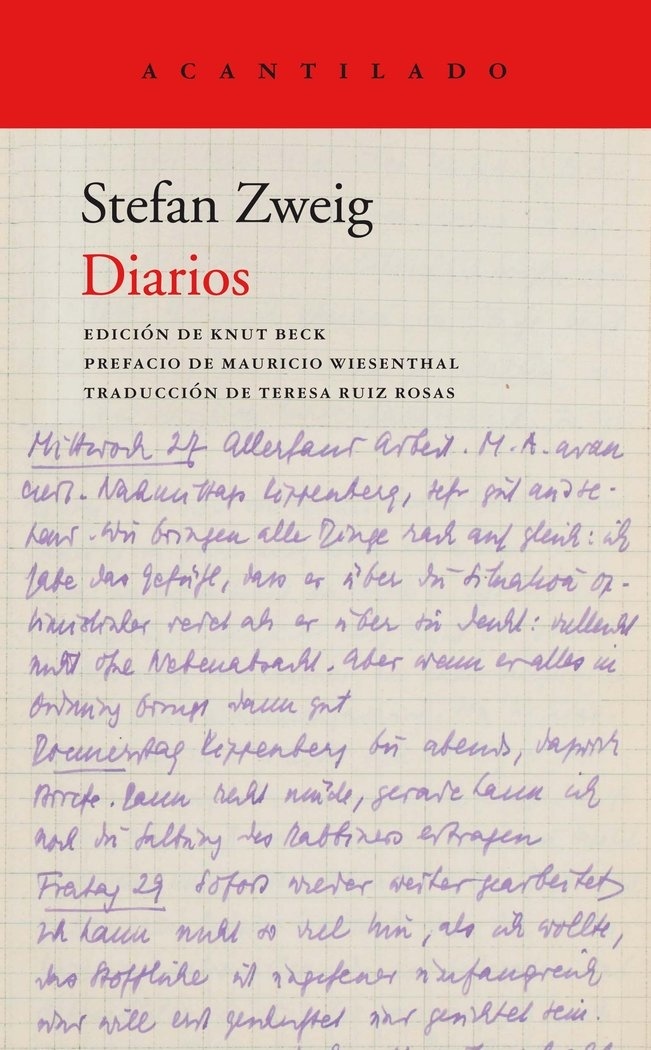 ACANTILADO
Stefan Zweig
Diarios
EDICIÓN DE KNUT BECK
PREFACIO DE MAURICIO WIESENTHAL
TRADUCCIÓN DE TERESA RUIZ ROSAS
Mittwoch 27 Allerhand Arbeit. M. A. avan
ciert. Nachmittags Kippenberg, sehr gut
Wir bringen alle Dinge rasch auf gleich: ich
habe das Gefühl, dass er über die Situation op-
timistischer redet als er über sie denkt: vielleicht
nicht ohne Nebenabsicht. Aber wenn er alles in
Ordnung bringt dann gut
Donnerstag Kippenberg bis abends, dazwisch
Briefe. Dann recht müde, gerade kann ich
noch die Salbung des Rabbiners ertragen
Freitag 29 Sofort wieder weiter gearbeitet
Ich kann nicht so viel hin, als ich wollte,
das Stoffliche ist ungeheuer umfangreich
und will erst gesichtet sein.